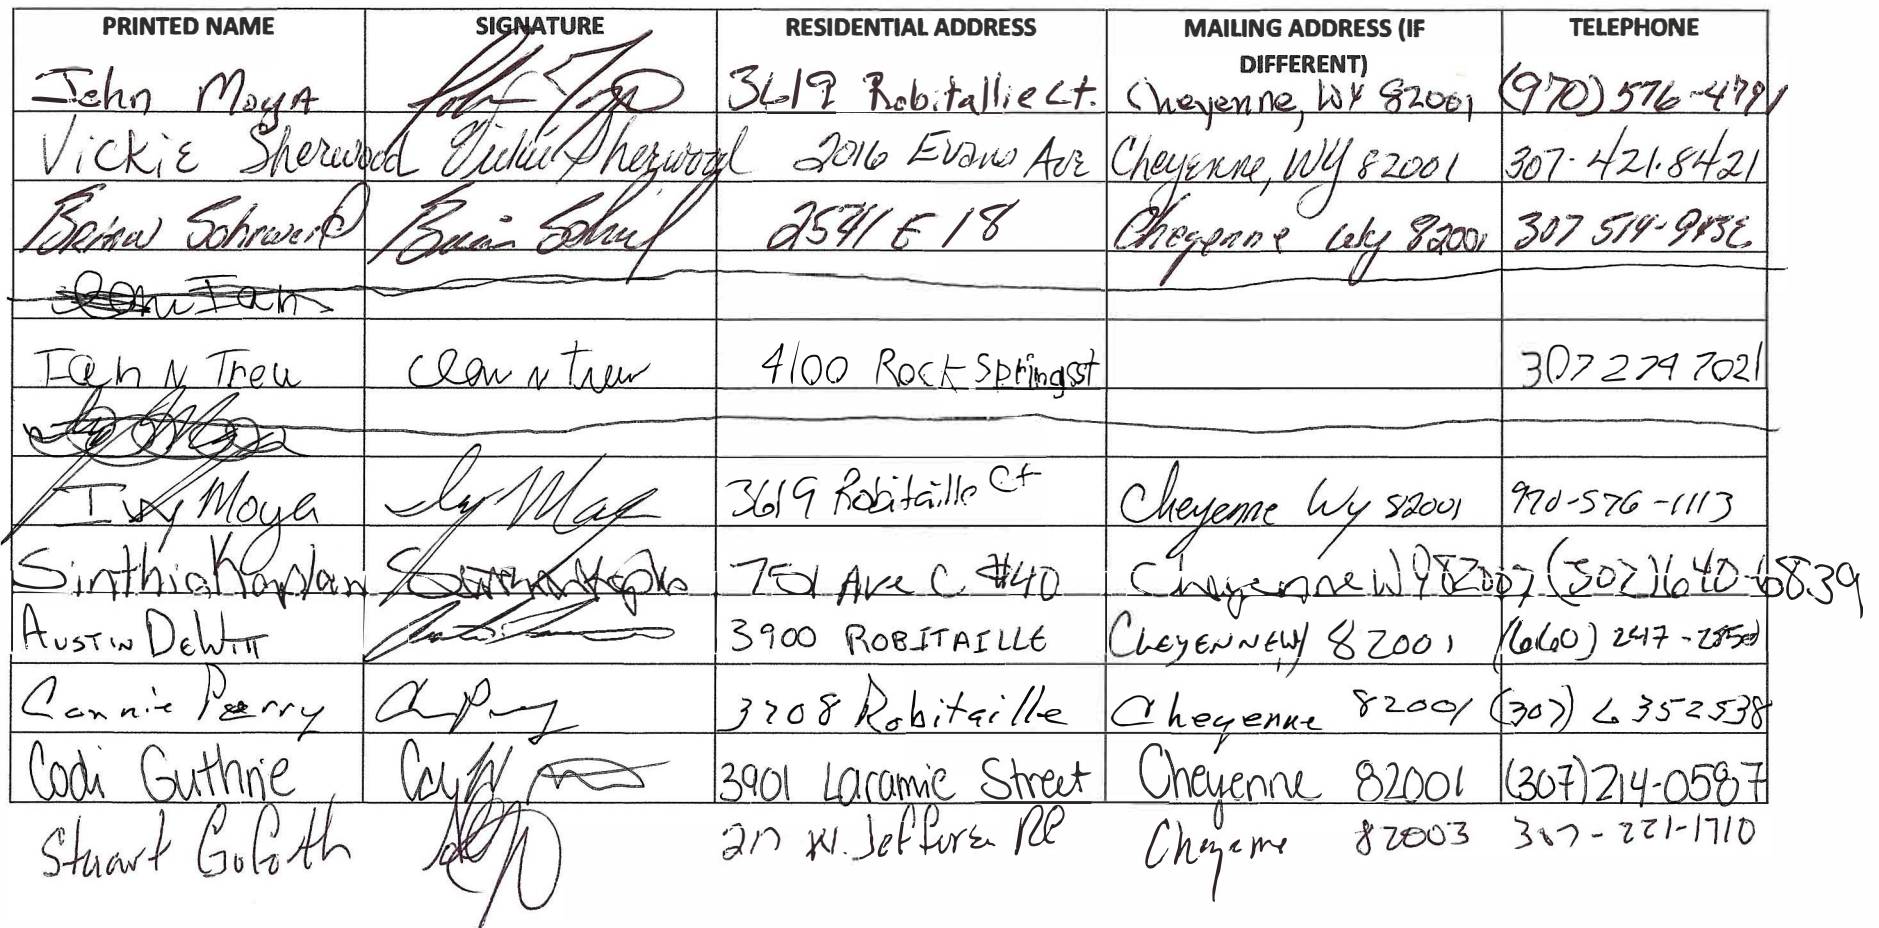 PRINTED NAME SIGNATURE RESIDENTIAL ADDRESS MAILING ADDRESS (IF DIFFERENT) TELEPHONE
John Moya 3619 Robitallie Ct. Cheyenne, WY 82001 (970) 576-4791
Vickie Sherwood Vickie Sherwood 2016 Evans Ave Cheyenne, WY 82001 307-421-8421
Brian 2541 E 18 Cheyenne Wy 82001 307 514-
Ian
Ian N Treu Ian N Treu 4100 Rock Springs st 307 274 7021
Ivy Moya Ivy Moya 3619 Robitaille Ct Cheyenne Wy 82001 970-576-1113
Sinthia Kaplan 751 Ave C #40 Cheyenne WY 82007 (307) 640-6839
AUSTIN DEWITT 3900 ROBITAILLE CHEYENNE WY 82001 (660) 247-2850
Connie Perry 3708 Robitaille Cheyenne 82001 (307) 6352538
Codi Guthrie 3901 Laramie Street Cheyenne 82001 (307) 214-0587
Stuart 217 W. Cheyenne 82003 307-221-1710